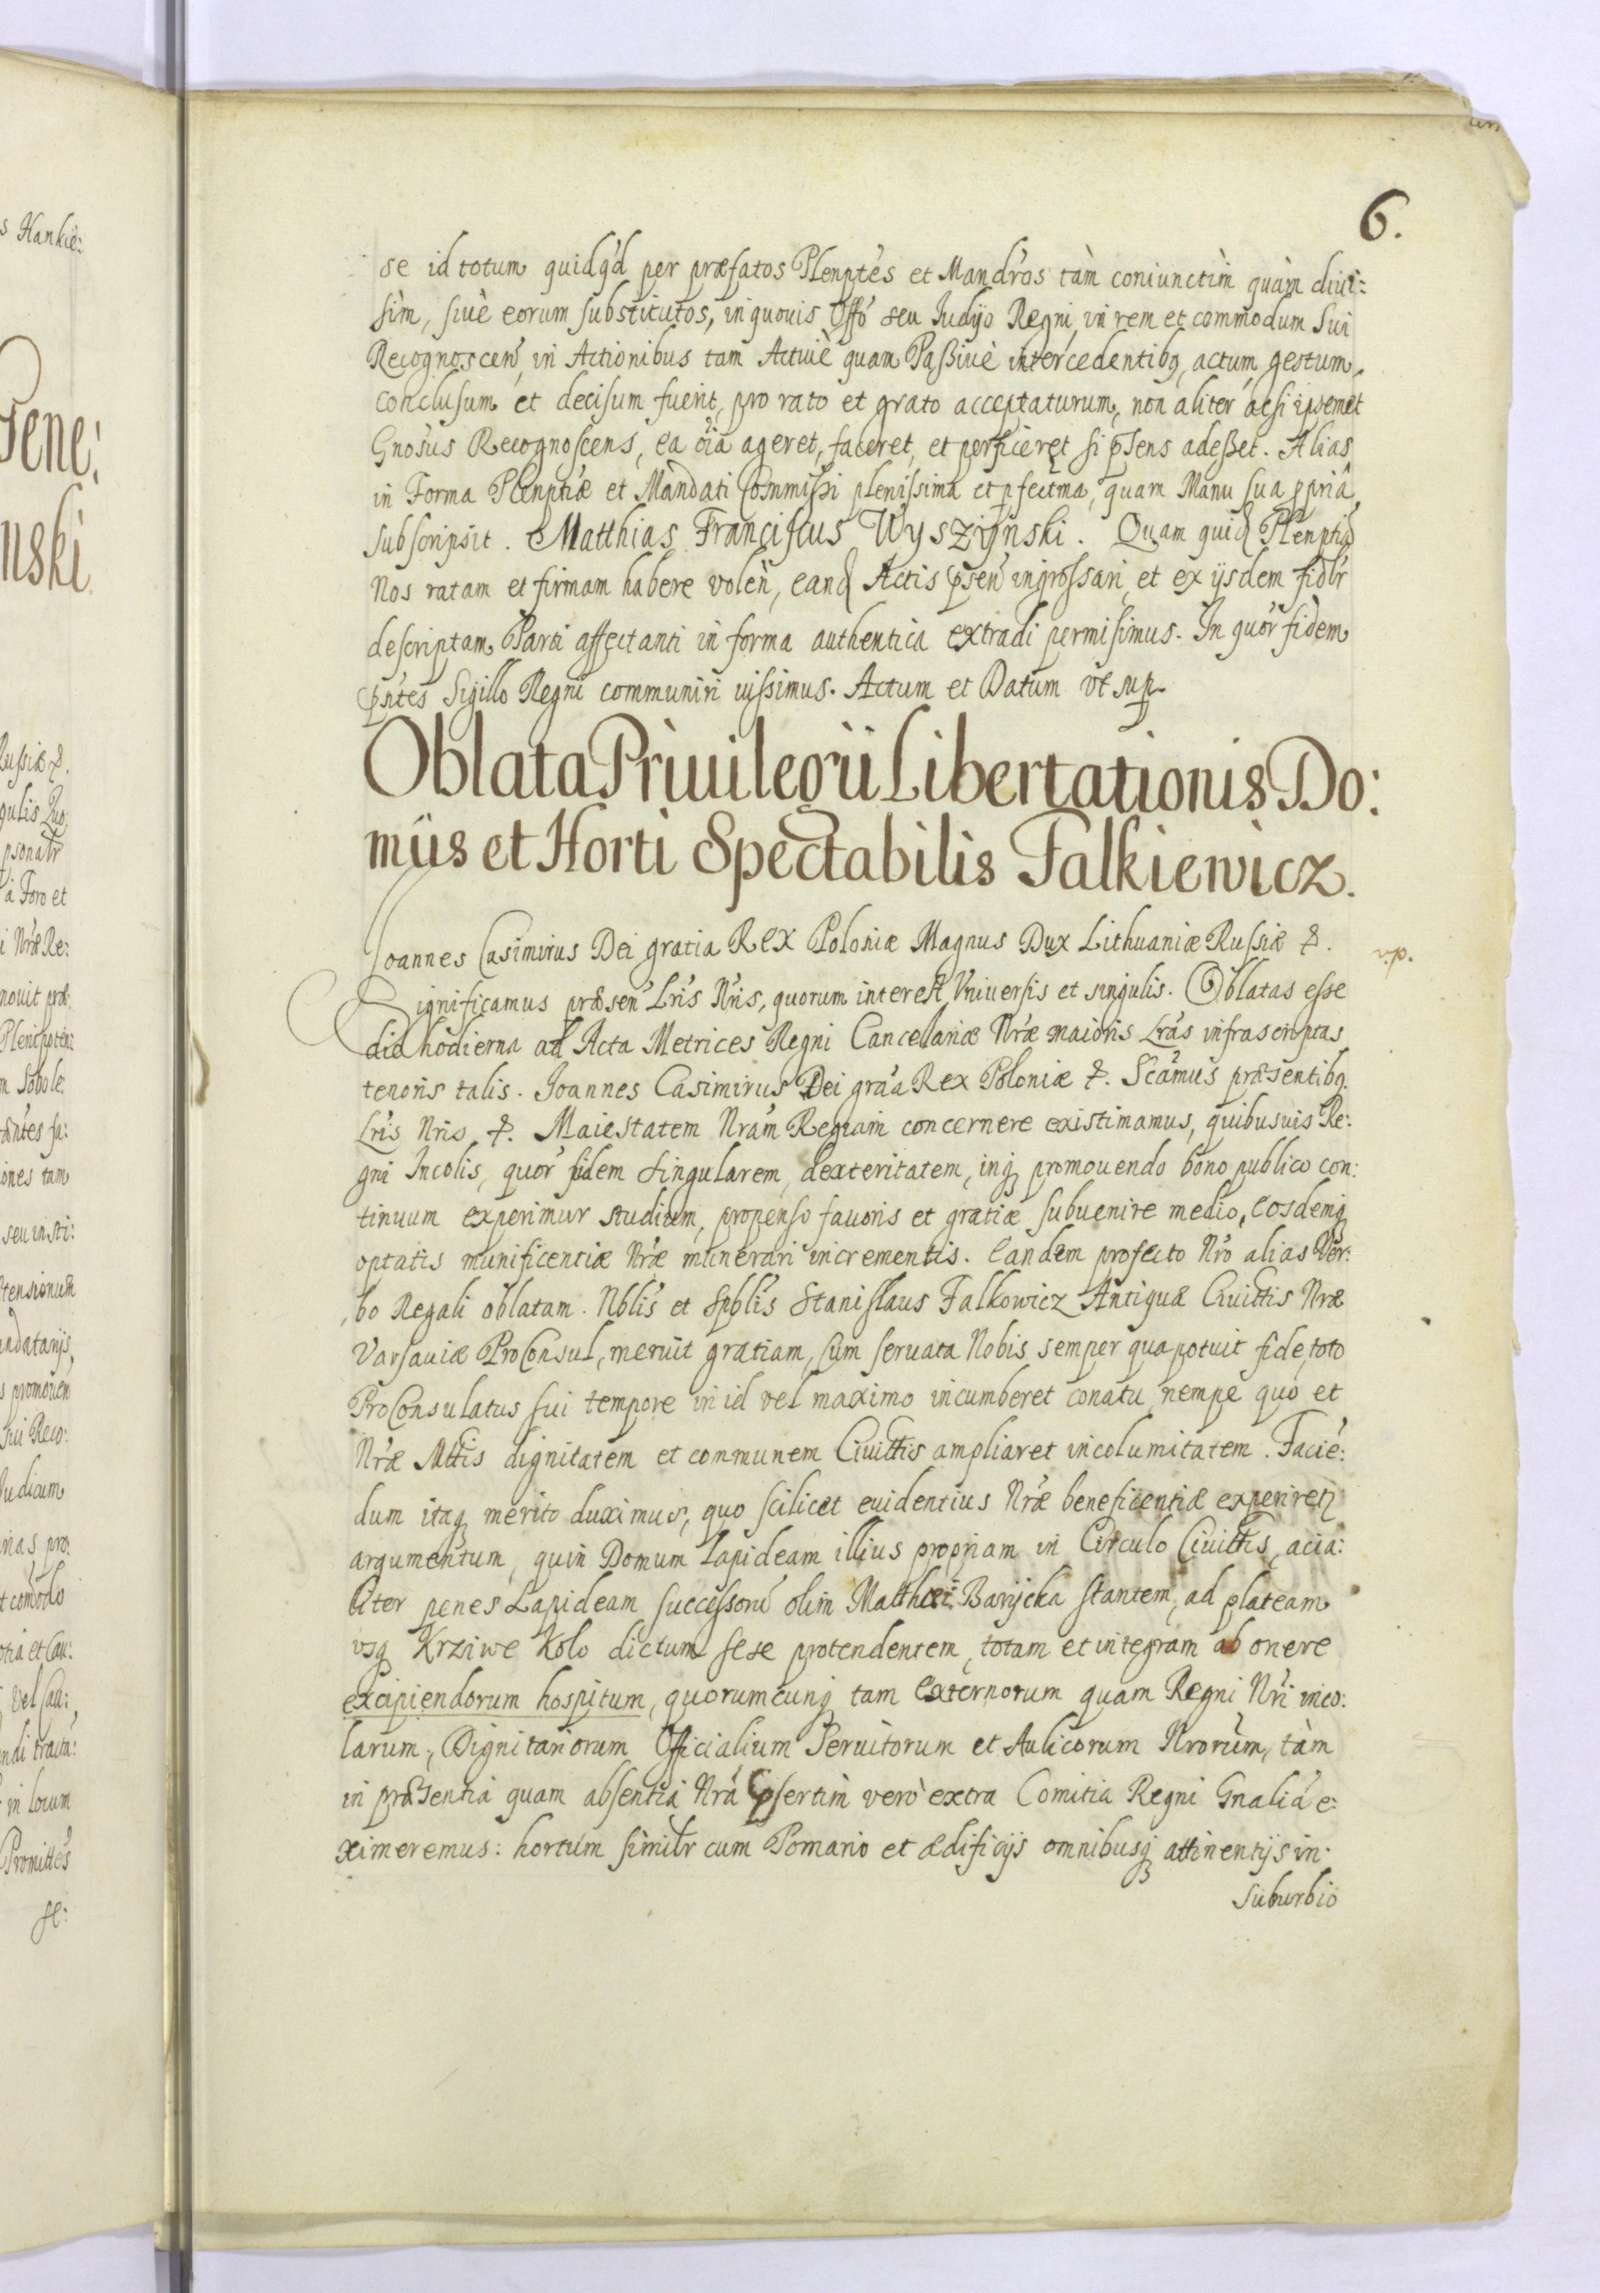 6.
se id totum quidq́d per præfatos Plenptẽs et Mandr̃os tàm coniunctìm quàm diui:
sìm, siuè eorum substitutos, in quouis Offõ seu Iudijo Regni, in rem et commodum Sui
Recognoscen̄, in Actionibus tam Actiuè quam Passiuè intercedentibq, actum gestum,
conclusum et decisum fuerit, pro rato et grato acceptaturum, non aliter acsi ipsemet
Gnõsus Recognoscens, ea õia ageret, faceret, et perficeret si p̃sens adesset. Alias
in Forma Plenptiæ et Mandati Commissi plenissima et pfectma, quam Manu sua ppriâ
subscripsit. Matthias Franciscus Wyszijnski. Quam quid Plenptia
Nos ratam et firmam habere volen̄, eand Actis p̃sen̄ ingrossari, et ex ijsdem fidlr
descriptam Parti affectanti in forma authentica extradi permisimus. In quor̃ fidem
p̃ntes Sigillo Regni communiri iussimus. Actum et Datum vt sup.
Oblata Priuilegii Libertationis Do:
mûs et Horti Spectabilis Falkiewicz.
Ioannes Casimirus Dei gratia Rex Poloniæ Magnus Dux Lithuaniæ Russiæ &.
v.p.
Significamus præsen̄ Lr̃is Nr̃is, quorum interest Vniuersis et singulis. Oblatas esse
die hodierna ad Acta Metrices Regni Cancelariæ Nr̃æ maioris Lr̃as infrascriptas
tenoris talis. Ioannes Casimirus Dei grã̃a Rex Poloniæ &. Scãmus præsentibq
Lr̃is Nris &. Maiestatem Nrãm Regiam concernere existimamus, quibusuis Re:
gni Incolis, quor̃ fidem singularem, dexteritatem, inq promouendo bono publico con:
tinuum experimur studium, propenso fauoris et gratiæ subuenire medio, eosdemq
optatis munificentiæ Nr̃æ munerari incrementis. Eandem profecto Nr̃o alias Ver:
bo Regali oblatam. Nblĩs et Spblĩs Stanislaus Falkowicz Antiquæ Ciuittis Nræ
Varsauiæ ProConsul, meruit gratiam, cum seruata Nobis semper qua potuit fide, toto
ProConsulatus sui tempore in id vel maximo incumberet conatu, nempe quò et
Nr̃æ Mttis dignitatem et communem Ciuittis ampliaret incolumitatem. Facie:
dum itaq merito duximus, quo scilicet euidentius Nr̃æ beneficentiæ experiret
argumentum, quin Domum Lapideam illius propriam in Circulo Ciuittis, acia:
liter penes Lapideam successoru̅ olim Matthæi Baryczka stantem, ad plateam
vsq Krziwe Kolo dictum sese protendentem, totam et integram ab onere
excipiendorum hospitum, quorumcunq tam Externorum quam Regni Nr̃i inco:
larum, Dignitariorum Officialium Seruitorum et Aulicorum Nrorum, tàm
in præsentia quam absentia Nrã p̃sertìm verò extra Comitia Regni Gnalia e:
ximeremus: hortum similr cum Pomario et ædificijs omnibusq attinentijs in
suburbio